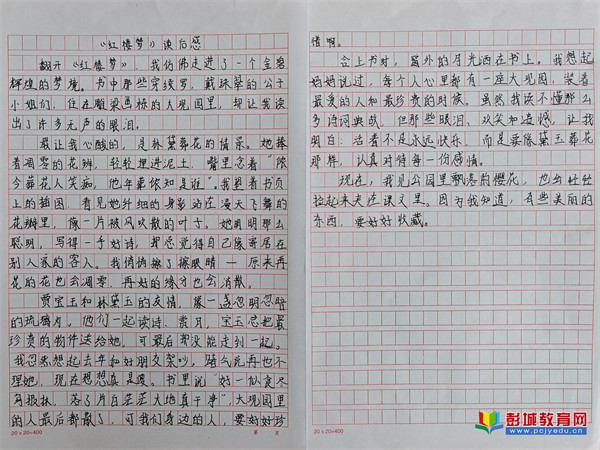 《红楼梦》读后感
翻开《红楼梦》，我仿佛走进了一个金碧
辉煌的梦境。书中那些穿绫罗、戴珠翠的公子
小姐们，住在雕梁画栋的大观园里，却让我读
出了许多无声的眼泪。
最让我心酸的，是林黛葬花的情景。她捧
着凋零的花瓣，轻轻埋进泥土，嘴里念着“侬
今葬花人笑痴，他年葬侬知是谁”。我望着书页
上的插图，看见她纤细的身影站在漫天飞舞的
花瓣里，像一片被风吹散的叶子。她明明那么
聪明，写得一手好诗，却总觉得自己像寄居在
别人家的客人。我悄悄擦了擦眼睛——原来再
美的花也会凋零，再好的缘分也会消散。
贾宝玉和林黛玉的友情，像一盏忽明忽暗
的琉璃灯。他们一起读诗、赏月，宝玉总把最
珍贵的物件送给她，可最后却没能走到一起。
我忽然想起去年和好朋友吵架，赌气说再也不
理她，现在想想真是傻。书里说“好一似食尽
鸟投林，落了片白茫茫大地真干净”，大观园里
的人最后都散了，可我们身边的人，要好好珍
20×20=400
第 页
惜啊。
合上书时，窗外的月光洒在书上。我想起
妈妈说过，每个人心里都有一座大观园，装着
最爱的人和最珍贵的时候。虽然我读不懂那么
多诗词典故，但那些眼泪、欢笑和遗憾，让我
明白：活着不是永远快乐，而是要像黛玉葬花
那样，认真对待每一份感情。
现在，我见公园里飘落的樱花，也会轻轻
捡起来夹在课文里。因为我知道，有些美丽的
东西，要好好收藏。
20×20=400
彭城教育网
www.pcjyedu.cn